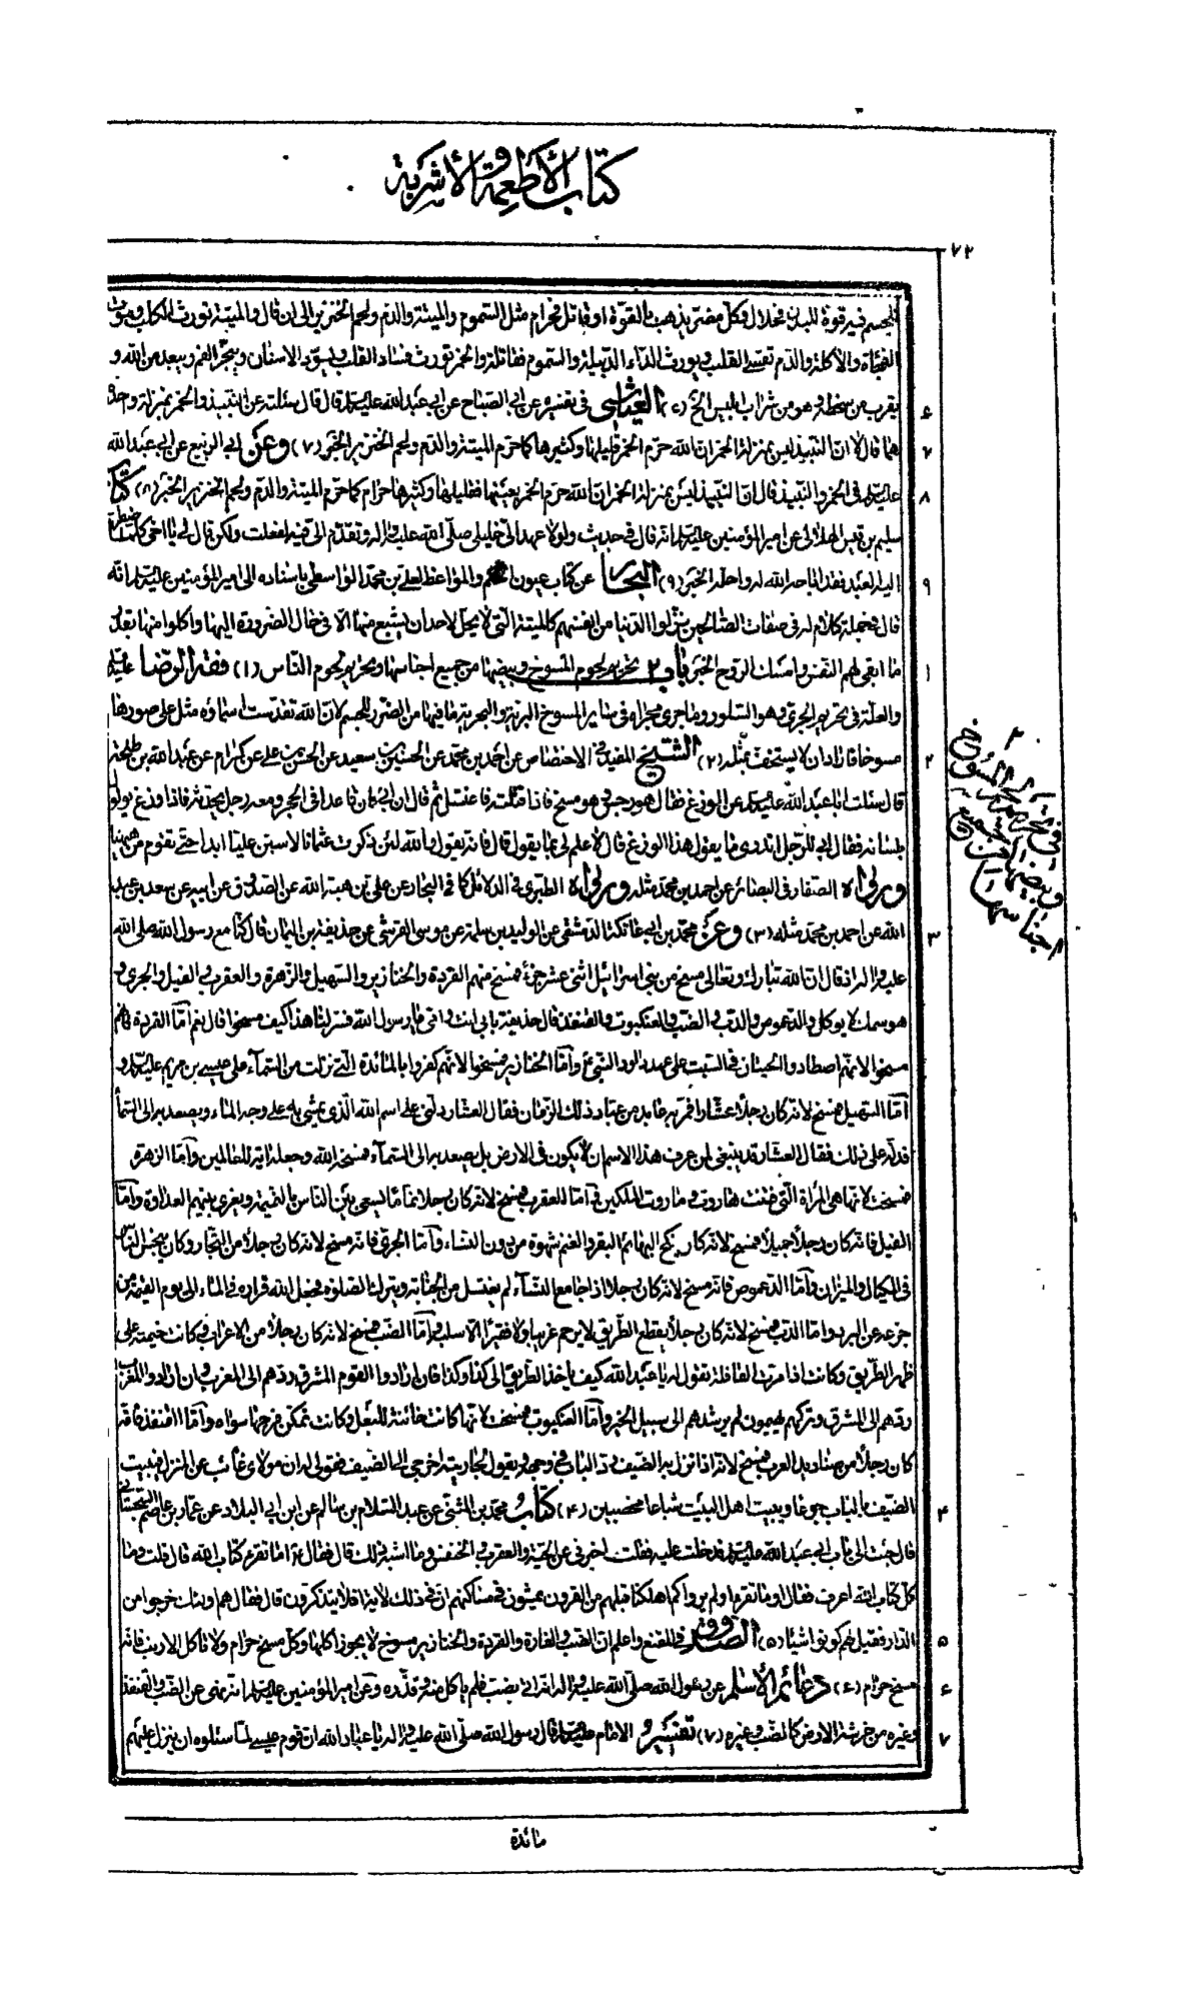 كتاب الأطعمة والأشربة
٧٢
للجسم فيه قوة للبدن فحلال وكل مضر يذهب بالقوة او قاتل فحرام مثل السموم والميتة والدم ولحم الخنزير الى ان قال والميتة تورث الكلب وموت
الفجأة والاكلة والدم يقسى القلب ويورث الداء الدبيلة والسموم فقاتلة والخمر تورث فساد القلب ويسود الاسنان ويبخر الفم ويبعد من الله و
٦ يقرب من سخطه وهو من شراب ابليس الخ (٦) العياشى فى تفسيره عن ابى الصباح عن ابى عبد الله عليه السلم قال قال سئلته عن النبيذ والخمر بمنزلة واحدة
٧ هما قال لا ان النبيذ ليس بمنزلة الخمر ان الله حرم الخمر قليلها وكثيرها كما حرم الميتة والدم ولحم الخنزير الخبر (٧) وعن ابى الربيع عن ابى عبد الله
٨ عليه السلم فى الخمر والنبيذ قال ان النبيذ ليس بمنزلة الخمر ان الله حرم الخمر بعينها فقليلها وكثيرها حرام كما حرم الميتة والدم ولحم الخنزير الخبر (٨) كتاب
سليم بن قيس الهلالى عن امير المؤمنين عليه السلم انه قال فى حديث ولولا عهد الى خليلى صلى الله عليه واله وتقدم الى فيه لفعلت ولكن قال لى يا اخى كلما اضطر
٩ اليه العبد فقد اباحه الله له واحله الخبر (٩) البحار عن كتاب عيون الحكم والمواعظ لعلى بن محمد الواسطى باسناده الى امير المؤمنين عليه السلم انه
قال فى جملة كلام له فى صفات الصالحين نزلوا الدنيا من انفسهم كالميتة التى لا يحل لاحد ان يشبع منها الا فى حال الضرورة اليها واكلوا منها بقدر
١ ما ابقى لهم النفس وامسك الروح الخبر باب ٢ تحريم لحوم المسوخ وبيضها من جميع اجناسها وتحريم لحوم الناس (١) فقه الرضا عليه السلم
والعلة فى تحريم الجرى وهو السلور وما جرى مجراه فى سائر المسوخ البرية والبحرية ما فيها من الضرر للجسم لان الله تقدست اسماؤه مثل على صورها
٢ مسوخا فاراد ان لا يستخف بمثله (٢) الشيخ المفيد فى الاختصاص عن احمد بن محمد عن الحسين بن سعيد عن الحسن بن على عن كرام عن عبد الله بن طلحة
قال سئلت ابا عبد الله عليه السلم عن الوزغ فقال هو رجس وهو مسخ فاذا قتلته فاغتسل ثم قال ان ابى كان قاعدا فى الحجر ومعه رجل يحدثه فاذا وزغ يولول
بلسانه فقال ابى للرجل اتدرى ما يقول هذا الوزغ قال لا علم لى بما يقول قال فانه يقول والله لئن ذكرت عثمان لاسبن عليا ابدا حتى تقوم من هيهنا
ورواه الصفار فى البصائر عن احمد بن محمد مثله ورواه الطبرى فى الدلائل كما فى البحار عن على بن هبة الله عن الصدوق عن ابيه عن سعد بن عبد
٣ الله عن احمد بن محمد مثله (٣) وعن محمد بن ابى عاتكة الدمشقى عن الوليد بن سلمة عن موسى القرشى عن حذيفة بن اليمان قال كنا مع رسول الله صلى الله
عليه واله اذ قال ان الله تبارك وتعالى مسخ من بنى اسرائيل اثنى عشر جزء فمسخ منهم القردة والخنازير والسهيل والزهرة والعقرب والفيل والجرى و
هو سمك لا يوكل والدعموص والدب والضب والعنكبوت والقنفذ قال حذيفة بابى انت وامى يا رسول الله فسر لنا هذا كيف مسخوا قال نعم اما القردة فانهم
مسخوا لانهم اصطادوا الحيتان فى السبت على عهد داود النبى ع واما الخنازير فمسخوا لانهم كفروا بالمائدة التى نزلت من السماء على عيسى بن مريم عليه السلم و
اما السهيل فمسخ لانه كان رجلا عشارا فمر به عابد من عباد ذلك الزمان فقال العشار دلنى على اسم الله الذى يمشى به على وجه الماء ويصعد به الى السماء
فدله على ذلك فقال العشار قد ينبغى لمن عرف هذا الاسم ان لا يكون فى الارض بل يصعد به الى السماء فمسخه الله وجعله اية للعالمين واما الزهرة
فمسخت لانها هى المراة التى فتنت هاروت وماروت الملكين واما العقرب فمسخ لانه كان رجلا نماما يسعى بين الناس بالنميمة ويغرى بينهم العداوة واما
الفيل فانه كان رجلا جميلا فمسخ لانه كان ينكح البهائم البقر والغنم شهوة من دون النساء واما الجرى فانه مسخ لانه كان رجلا من التجار وكان يبخس الناس
فى المكيال والميزان واما الدعموص فانه مسخ لانه كان رجلا اذا جامع النساء لم يغتسل من الجنابة ويترك الصلوة فجعل الله قراره فى الماء الى يوم القيمة من
جزعه عن البرد واما الدب فمسخ لانه كان رجلا يقطع الطريق لا يرحم غريبا ولا فقيرا الا سلبه واما الضب فمسخ لانه كان رجلا من الاعراب وكانت خيمته على
ظهر الطريق وكانت اذا مرت القافلة تقول له يا عبد الله كيف ياخذ الطريق الى كذا وكذا فان ارادوا القوم المشرق ردهم الى المغرب وان ارادوا المغرب
ردهم الى المشرق وتركهم يهيمون لم يرشدهم الى سبيل الخير واما العنكبوت فمسخت لانها كانت خائنة للبعل وكانت تمكن فرجها سواه واما القنفذ فانه
كان رجلا من صناديد العرب فمسخ لانه اذا نزل به الضيف رد الباب فى وجهه ويقول لجاريته اخرجى الى الضيف فقولى له ان مولاى غائب عن المنزل فيبيت
٤ الضيف بالباب جوعا ويبيت اهل البيت شباعا مخصبين (٤) كتاب محمد بن المثنى عن عبد السلام بن سالم عن ابن ابى البلاد عن عمار بن عاصم السجستانى
قال جئت الى باب ابى عبد الله عليه السلم فدخلت عليه فقلت اخبرنى عن الحية والعقرب والخنفس وما اشبه ذلك قال فقال ع اما تقرء كتاب الله قال قلت وما
كل كتاب الله اعرف فقال اوما تقرء اولم يروا كم اهلكنا قبلهم من القرون يمشون فى مساكنهم ان فى ذلك لاية افلا يتذكرون قال فقال هم اولئك خرجوا من
٥ الدار فقيل لهم كونوا شيئا (٥) الصدوق فى المقنع واعلم ان الضب والفارة والقردة والخنازير مسوخ لا يجوز اكلها وكل مسخ حرام ولا تاكل الارنب فانه
٦ مسخ حرام (٦) دعائم الأسلام عن رسول الله صلى الله عليه واله انه اتى بضب فلم ياكل منه وقذره وعن امير المؤمنين عليه السلم انه نهى عن الضب والقنفذ
٧ وغيره من حرشة الارض كالضب وغيره (٧) تفسير الامام عليه السلم قال رسول الله صلى الله عليه واله يا عباد الله ان قوم عيسى لما سئلوه ان ينزل عليهم
مائدة
٢
فى تحريم لحوم المسوخ
وبيضها من جميع
اجناسها